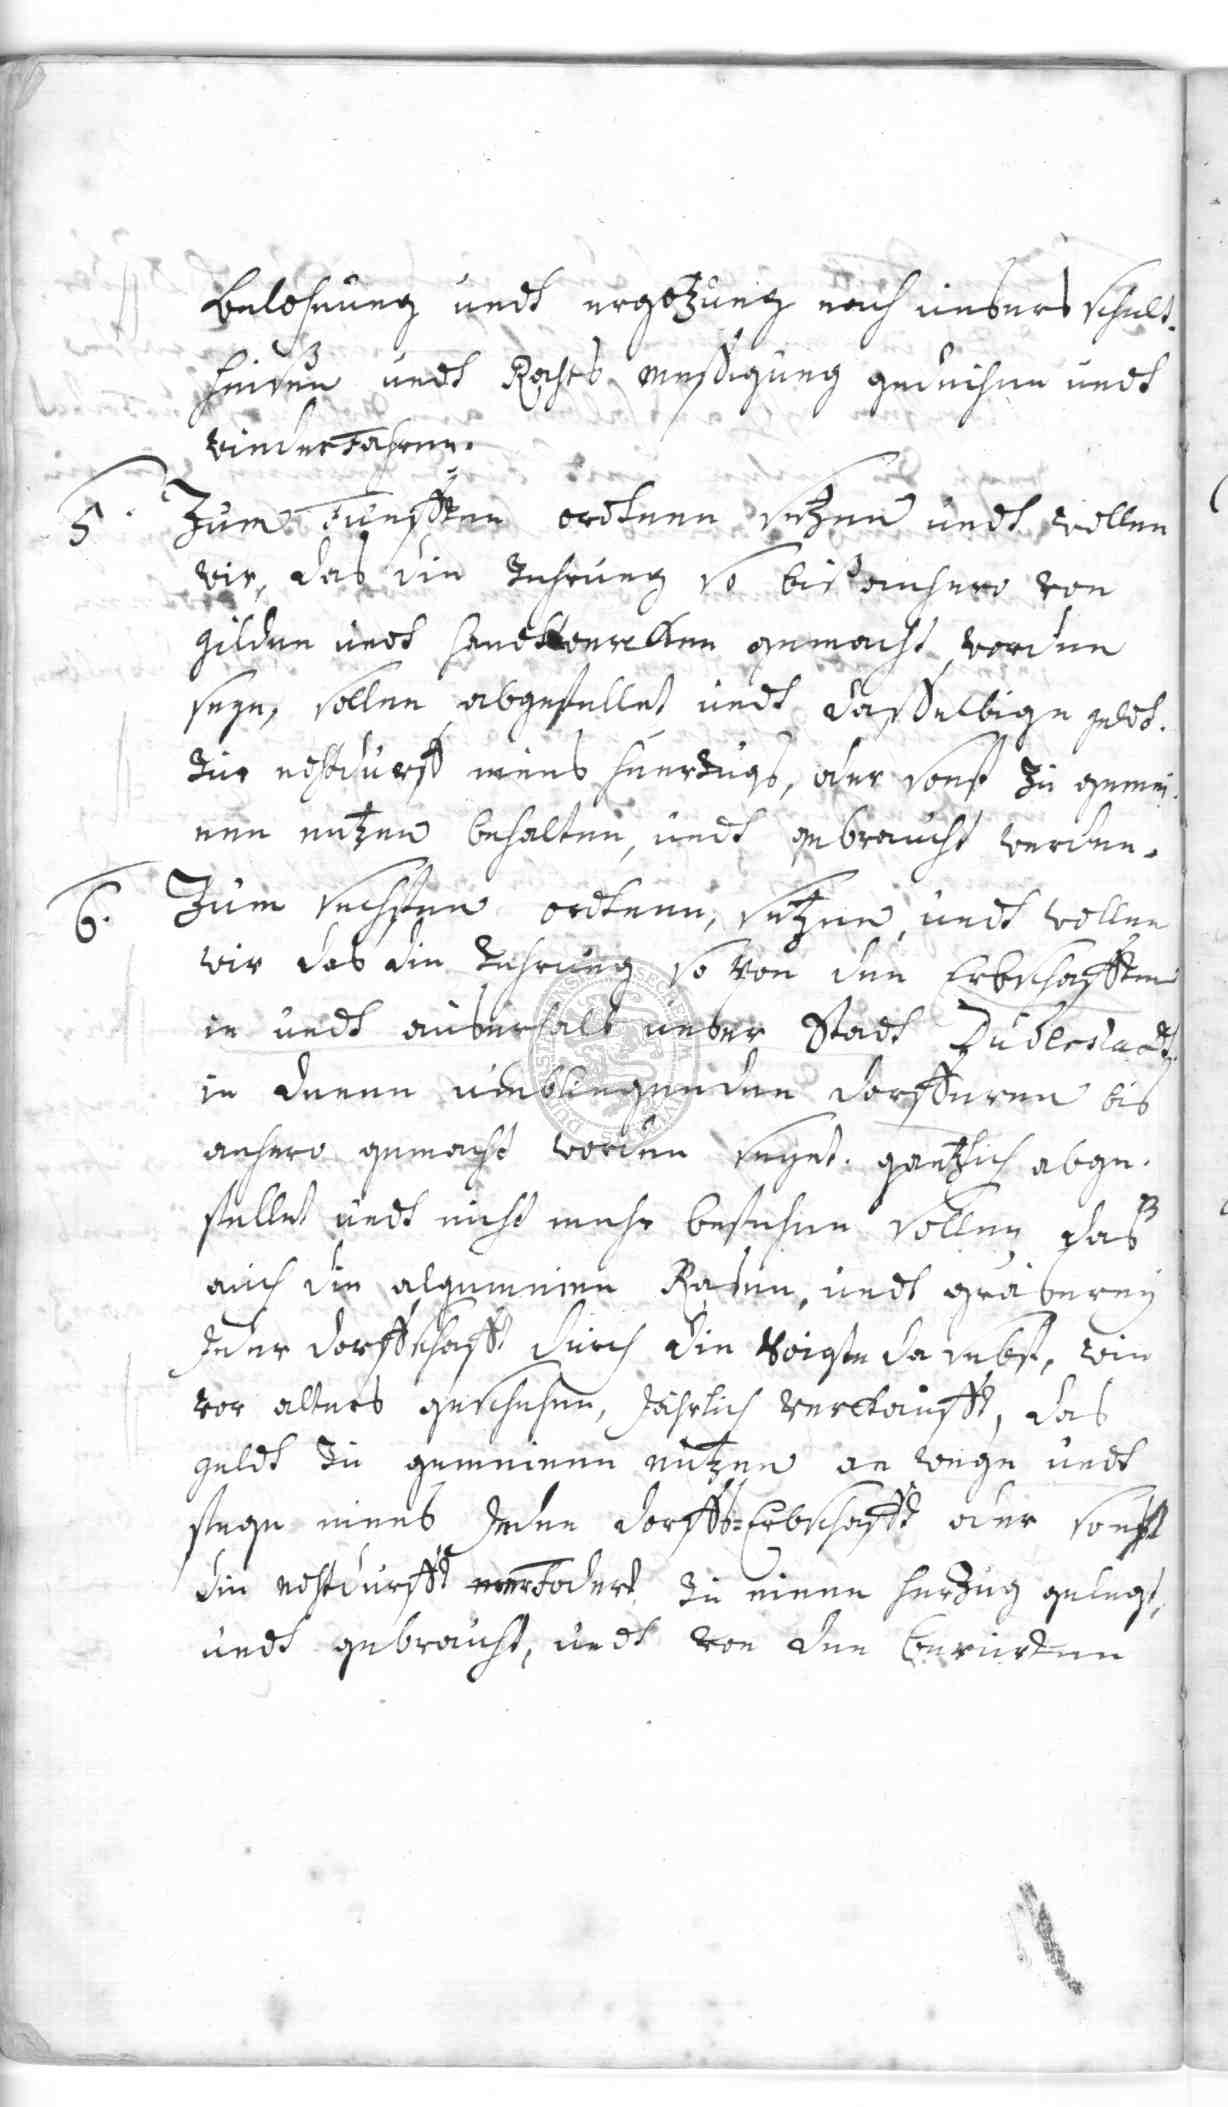 Belohnung undt ergötzung nach unsers Schult-
heißen undt Rahts meßigung gedeihen undt
wiederfahren.
5. Zum Fünfften ordtnen setzen undt wollen
wir, das die Zehrung so biß anhero von
gilden undt handtwercken gemacht worden
seye, sollen abgestellet undt dasselbige geldt
zur nohtdurfft eines heerzugs, oder sonst zu gemei-
nen nutzen behalten, undt gebraucht werden.
6. Zum sechsten ordtnen, setzen, undt wollen
wir das die Zehrung so von den Erbschafften
in undt auserhalb unser Stadt Duderstadt
in denen umbliegenden dorfferen bis
anhero gemacht worden seynt. gantzlich abge-
stellet undt nicht mehr bestehen sollen das
auch die algemeinen Rasen, undt gräserey
Jeder dorffschafft durch die Voigte daselbst, wie
vor alters geschehen, Jährlich verkaufft, das
geldt zu gemeinen nutzen an wege undt
stege eines Jeden dorffs-Erbschafft oder sonst
die nohtdurfft erfodert zu einem herzug gelegt,
undt gebraucht, undt von den